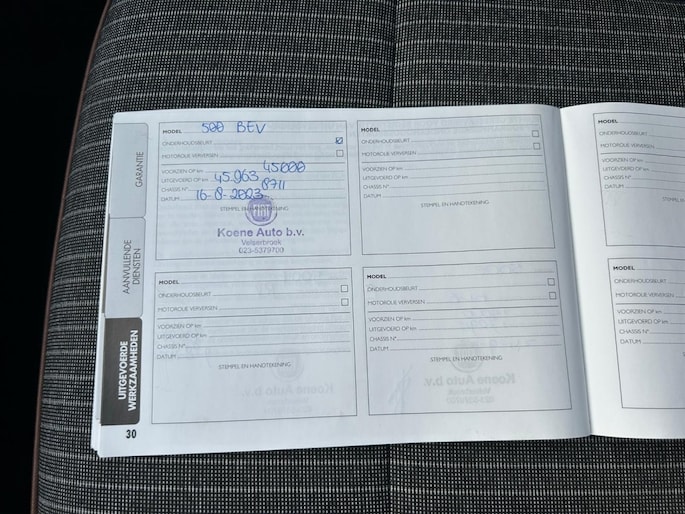 GARANTIE
AANVULLENDE
DIENSTEN
UITGEVOERDE
WERKZAAMHEDEN
30
MODEL 500 BEV
ONDERHOUDSBEURT
MOTOROLIE VERVERSEN
VOORZIEN OP km 45.000
UITGEVOERD OP km 45.963
CHASSIS N° 8711
DATUM 16-8-2023
STEMPEL EN HANDTEKENING
FIAT
Koene Auto b.v.
Velserbroek
023-5379700
MODEL
ONDERHOUDSBEURT
MOTOROLIE VERVERSEN
VOORZIEN OP km
UITGEVOERD OP km
CHASSIS N°
DATUM
STEMPEL EN HANDTEKENING
MODEL
ONDERHOUDSBEURT
MOTOROLIE VERVERSEN
VOORZIEN OP km
UITGEVOERD OP km
CHASSIS N°
DATUM
STEMPEL EN HANDTEKENING
MODEL
ONDERHOUDSBEURT
MOTOROLIE VERVERSEN
VOORZIEN OP km
UITGEVOERD OP km
CHASSIS N°
DATUM
STEMPEL EN HANDTEKENING
Koene Auto b.v.
MODEL
ONDERHOUDSBEURT
MOTOROLIE VERVERSEN
VOORZIEN OP km
UITGEVOERD OP km
CHASSIS N°
DATUM
MODEL
ONDERHOUDSBEURT
MOTOROLIE VERVERSEN
VOORZIEN OP km
UITGEVOERD OP km
CHASSIS N°
DATUM